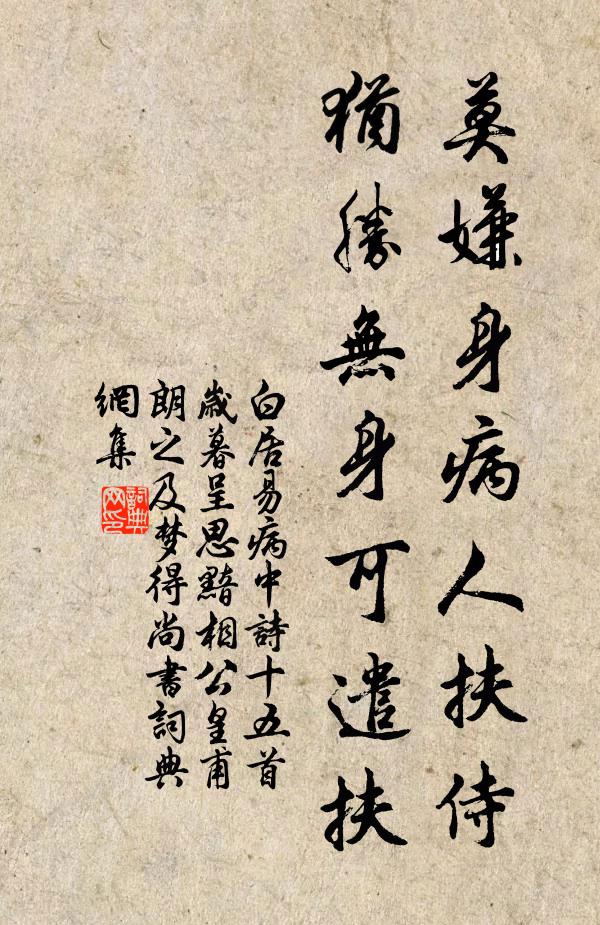 莫嫌身病人扶侍
猶勝無身可遣扶
白居易病中詩十五首
歲暮呈思黯相公皇甫
朗之及梦得尚書詞典
網集
詞典
网印